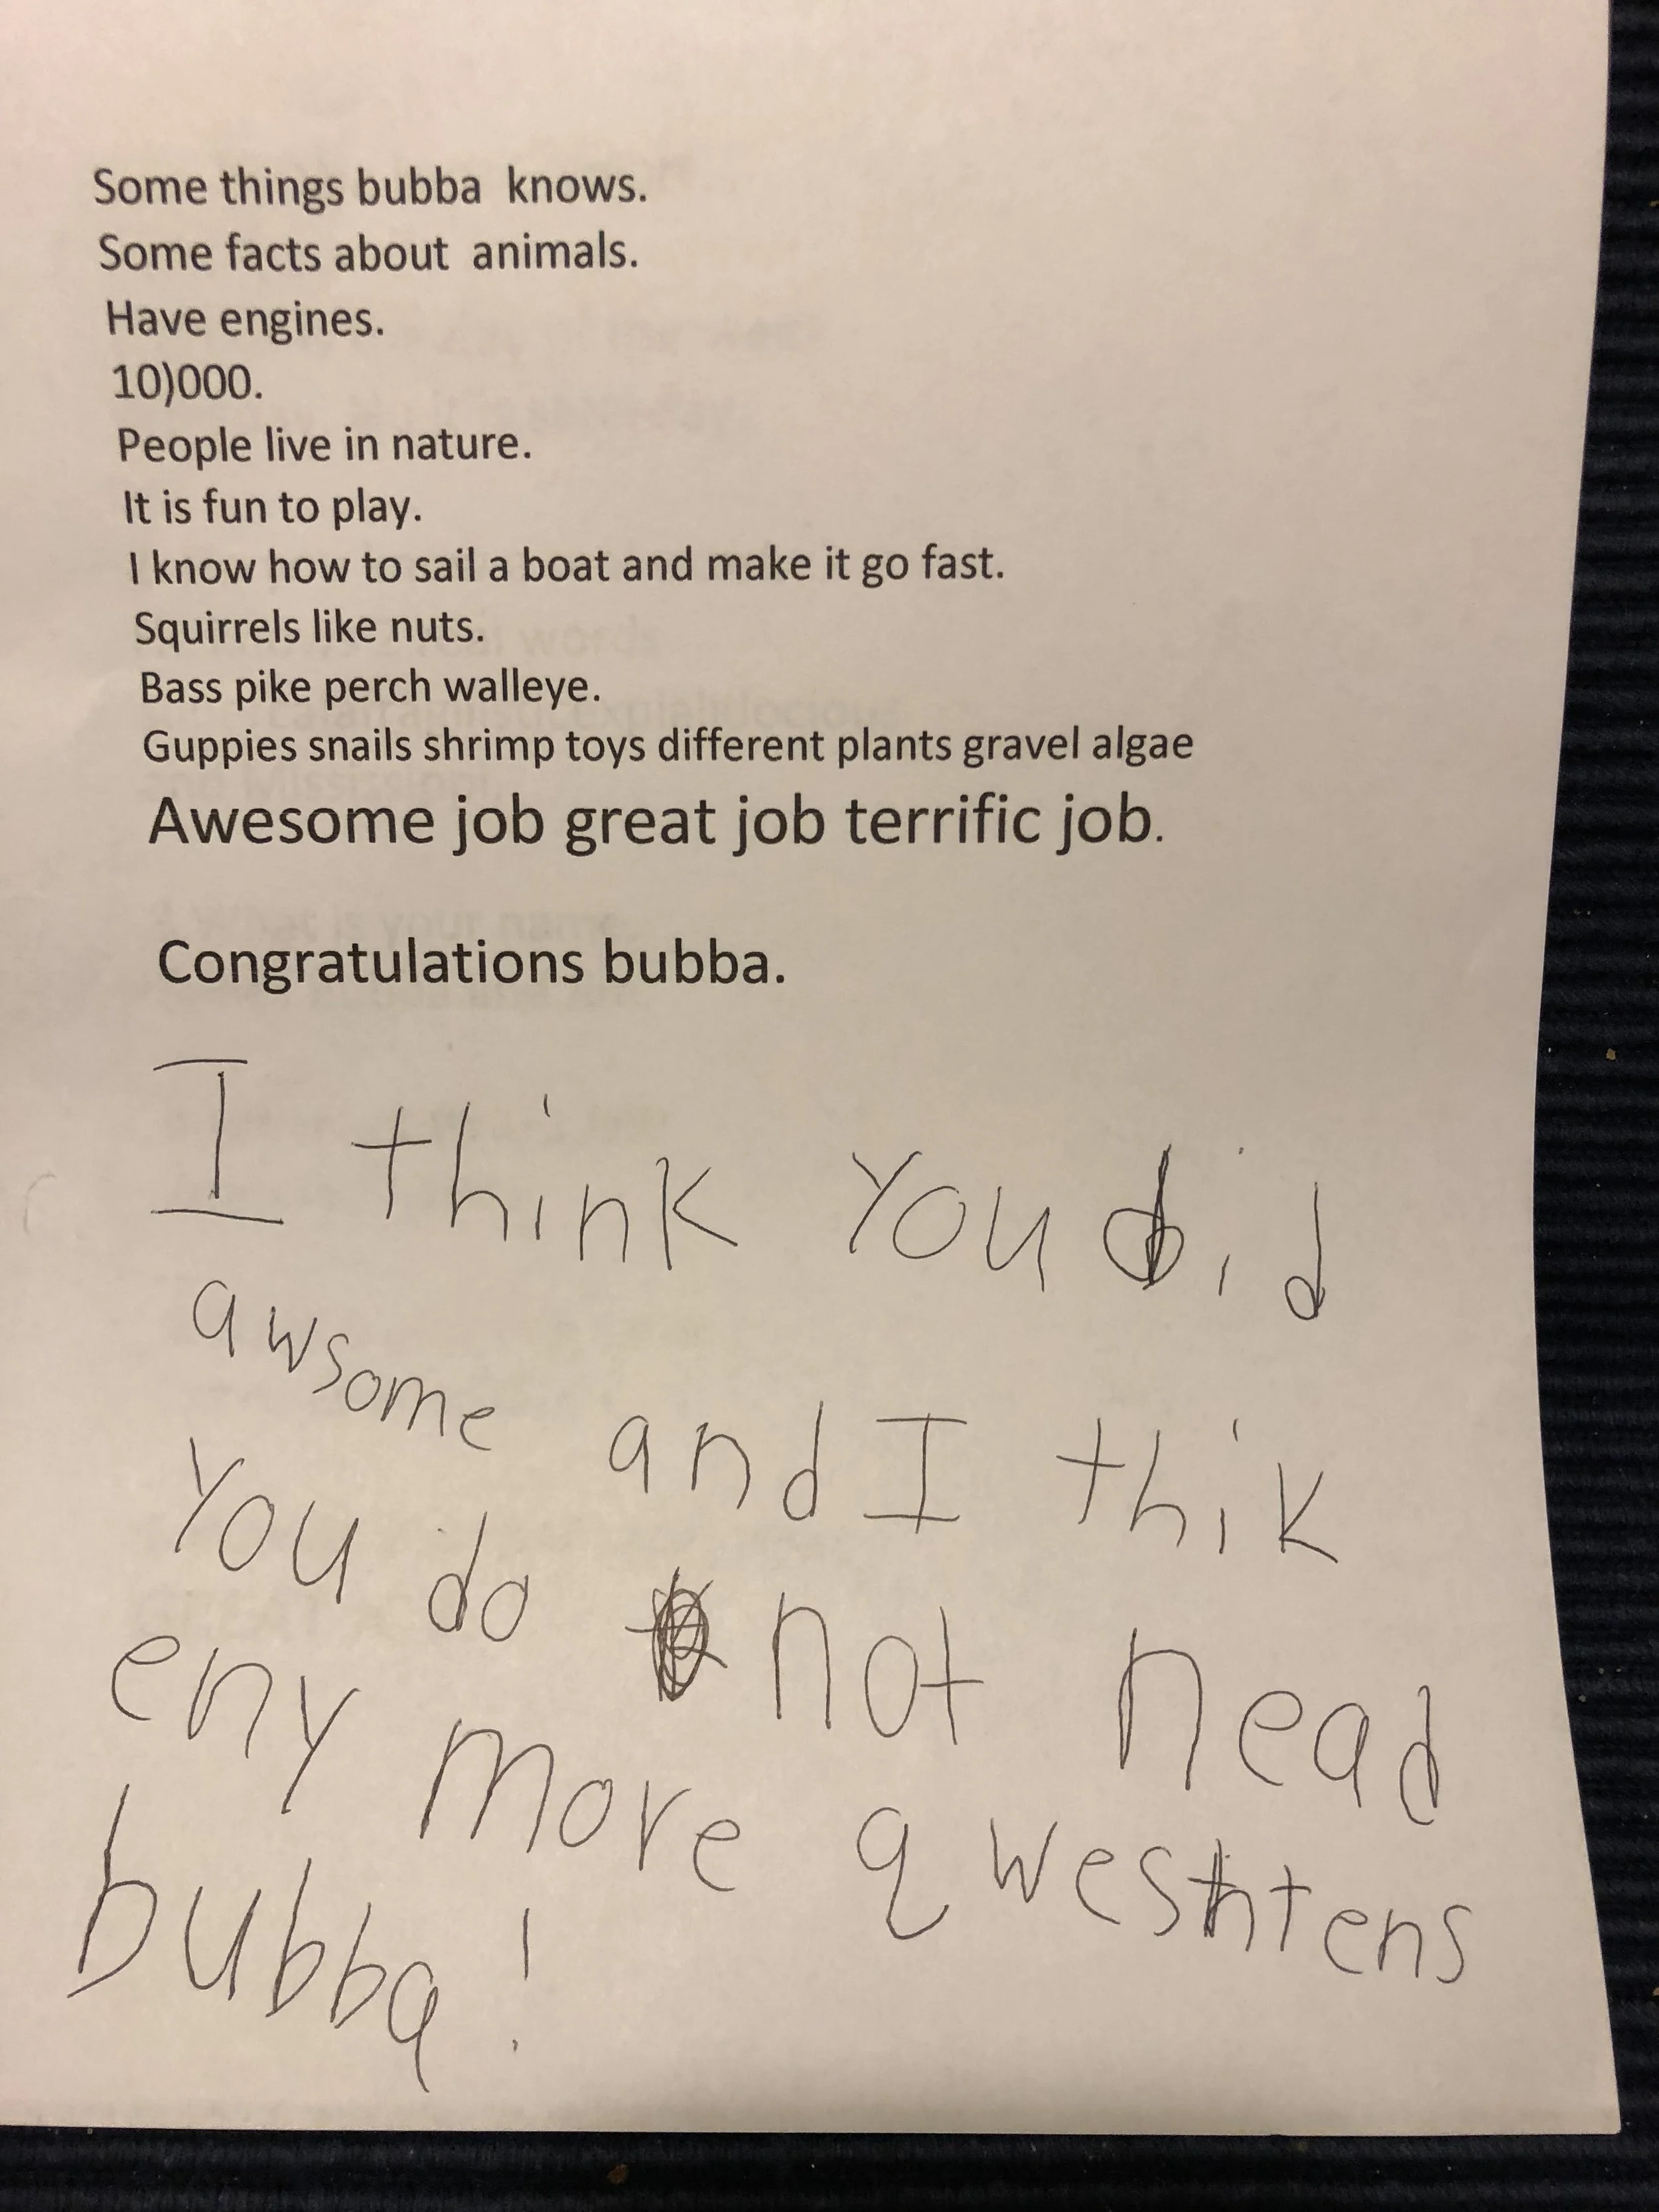 Some things bubba  knows.
Some facts about  animals.
Have engines.
10)000.
People live in nature.
It is fun to play.
I know how to sail a boat and make it go fast.
Squirrels like nuts.
Bass pike perch walleye.
Guppies snails shrimp toys different plants gravel algae
Awesome job great job terrific job.
Congratulations bubba.
I think You did
awsome and I thik
You do not nead
eny more qweshtens
bubba!